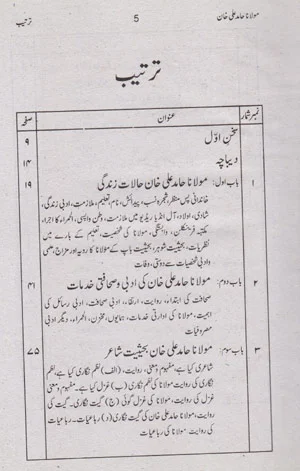 مولانا حامد علی خان 5 ترتیب
ترتیب
نمبر شمار عنوان صفحہ
سخنِ اوّل ۹
دیباچہ ۱۴
۱ باب اول: مولانا حامد علی خان حالات زندگی ۱۹
خاندانی پس منظر، شجرہ نسب، پیدائش، نام، تعلیم، ملازمت، ادبی زندگی،
شادی، اولاد، آل انڈیا ریڈیو میں ملازمت، وطن واپسی، الحمراء کا اجراء،
مکتبہ فرینکلن، وابستگی، مولانا کی شخصیت، تعلیم کے بارے میں
نظریات، بحیثیت شوہر، بحیثیت باپ کے مولانا کا رویہ اور مزاج، علمی
و ادبی شخصیات سے دوستی، وفات
۲ باب دوم: مولانا حامد علی خان کی ادبی و صحافتی خدمات ۴۱
صحافت کی ابتداء، روایت، ارتقاء، ادبی صحافت، ادبی رسائل کی
اہمیت، مولانا کی ادارتی خدمات، ہمایوں، مخزن، الحمراء، دیگر ادبی
مصروفیات
۳ باب سوم: مولانا حامد علی خان بحیثیت شاعر ۷۵
شاعری کیا ہے، مفہوم و معنی، روایت، (الف) نظم نگاری کیا ہے، نظم
نگاری کی روایت، مولانا کی نظم نگاری (ب) غزل کیا ہے۔ مفہوم و معنی
روایت، مولانا کی غزل گوئی (ج) گیت نگاری۔ گیت کی
روایت، مولانا حامد علی خان کی گیت نگاری (د) رباعیات۔ رباعیات
کی روایت مولانا کی رباعیات